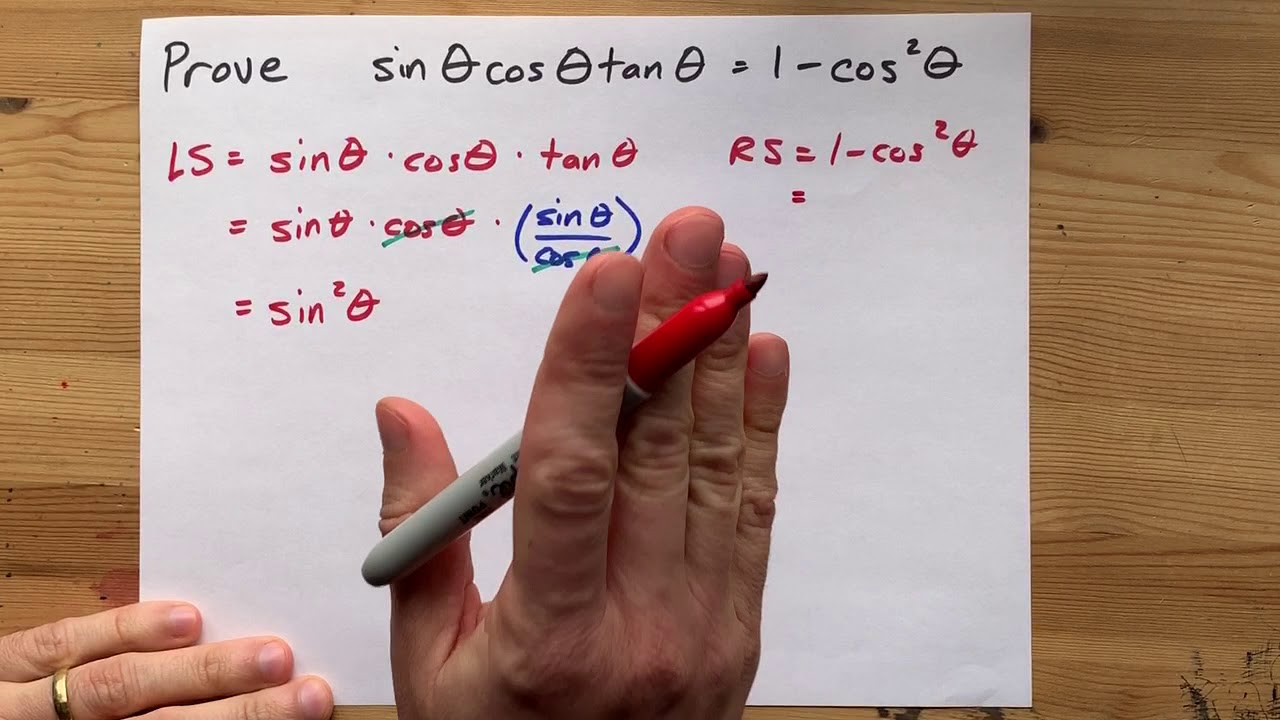 Prove sin θ cos θ tan θ = 1 - cos²θ
LS = sin θ · cos θ · tan θ
= sin θ · cos θ · (sin θ / cos
= sin²θ
RS = 1 - cos²θ
=